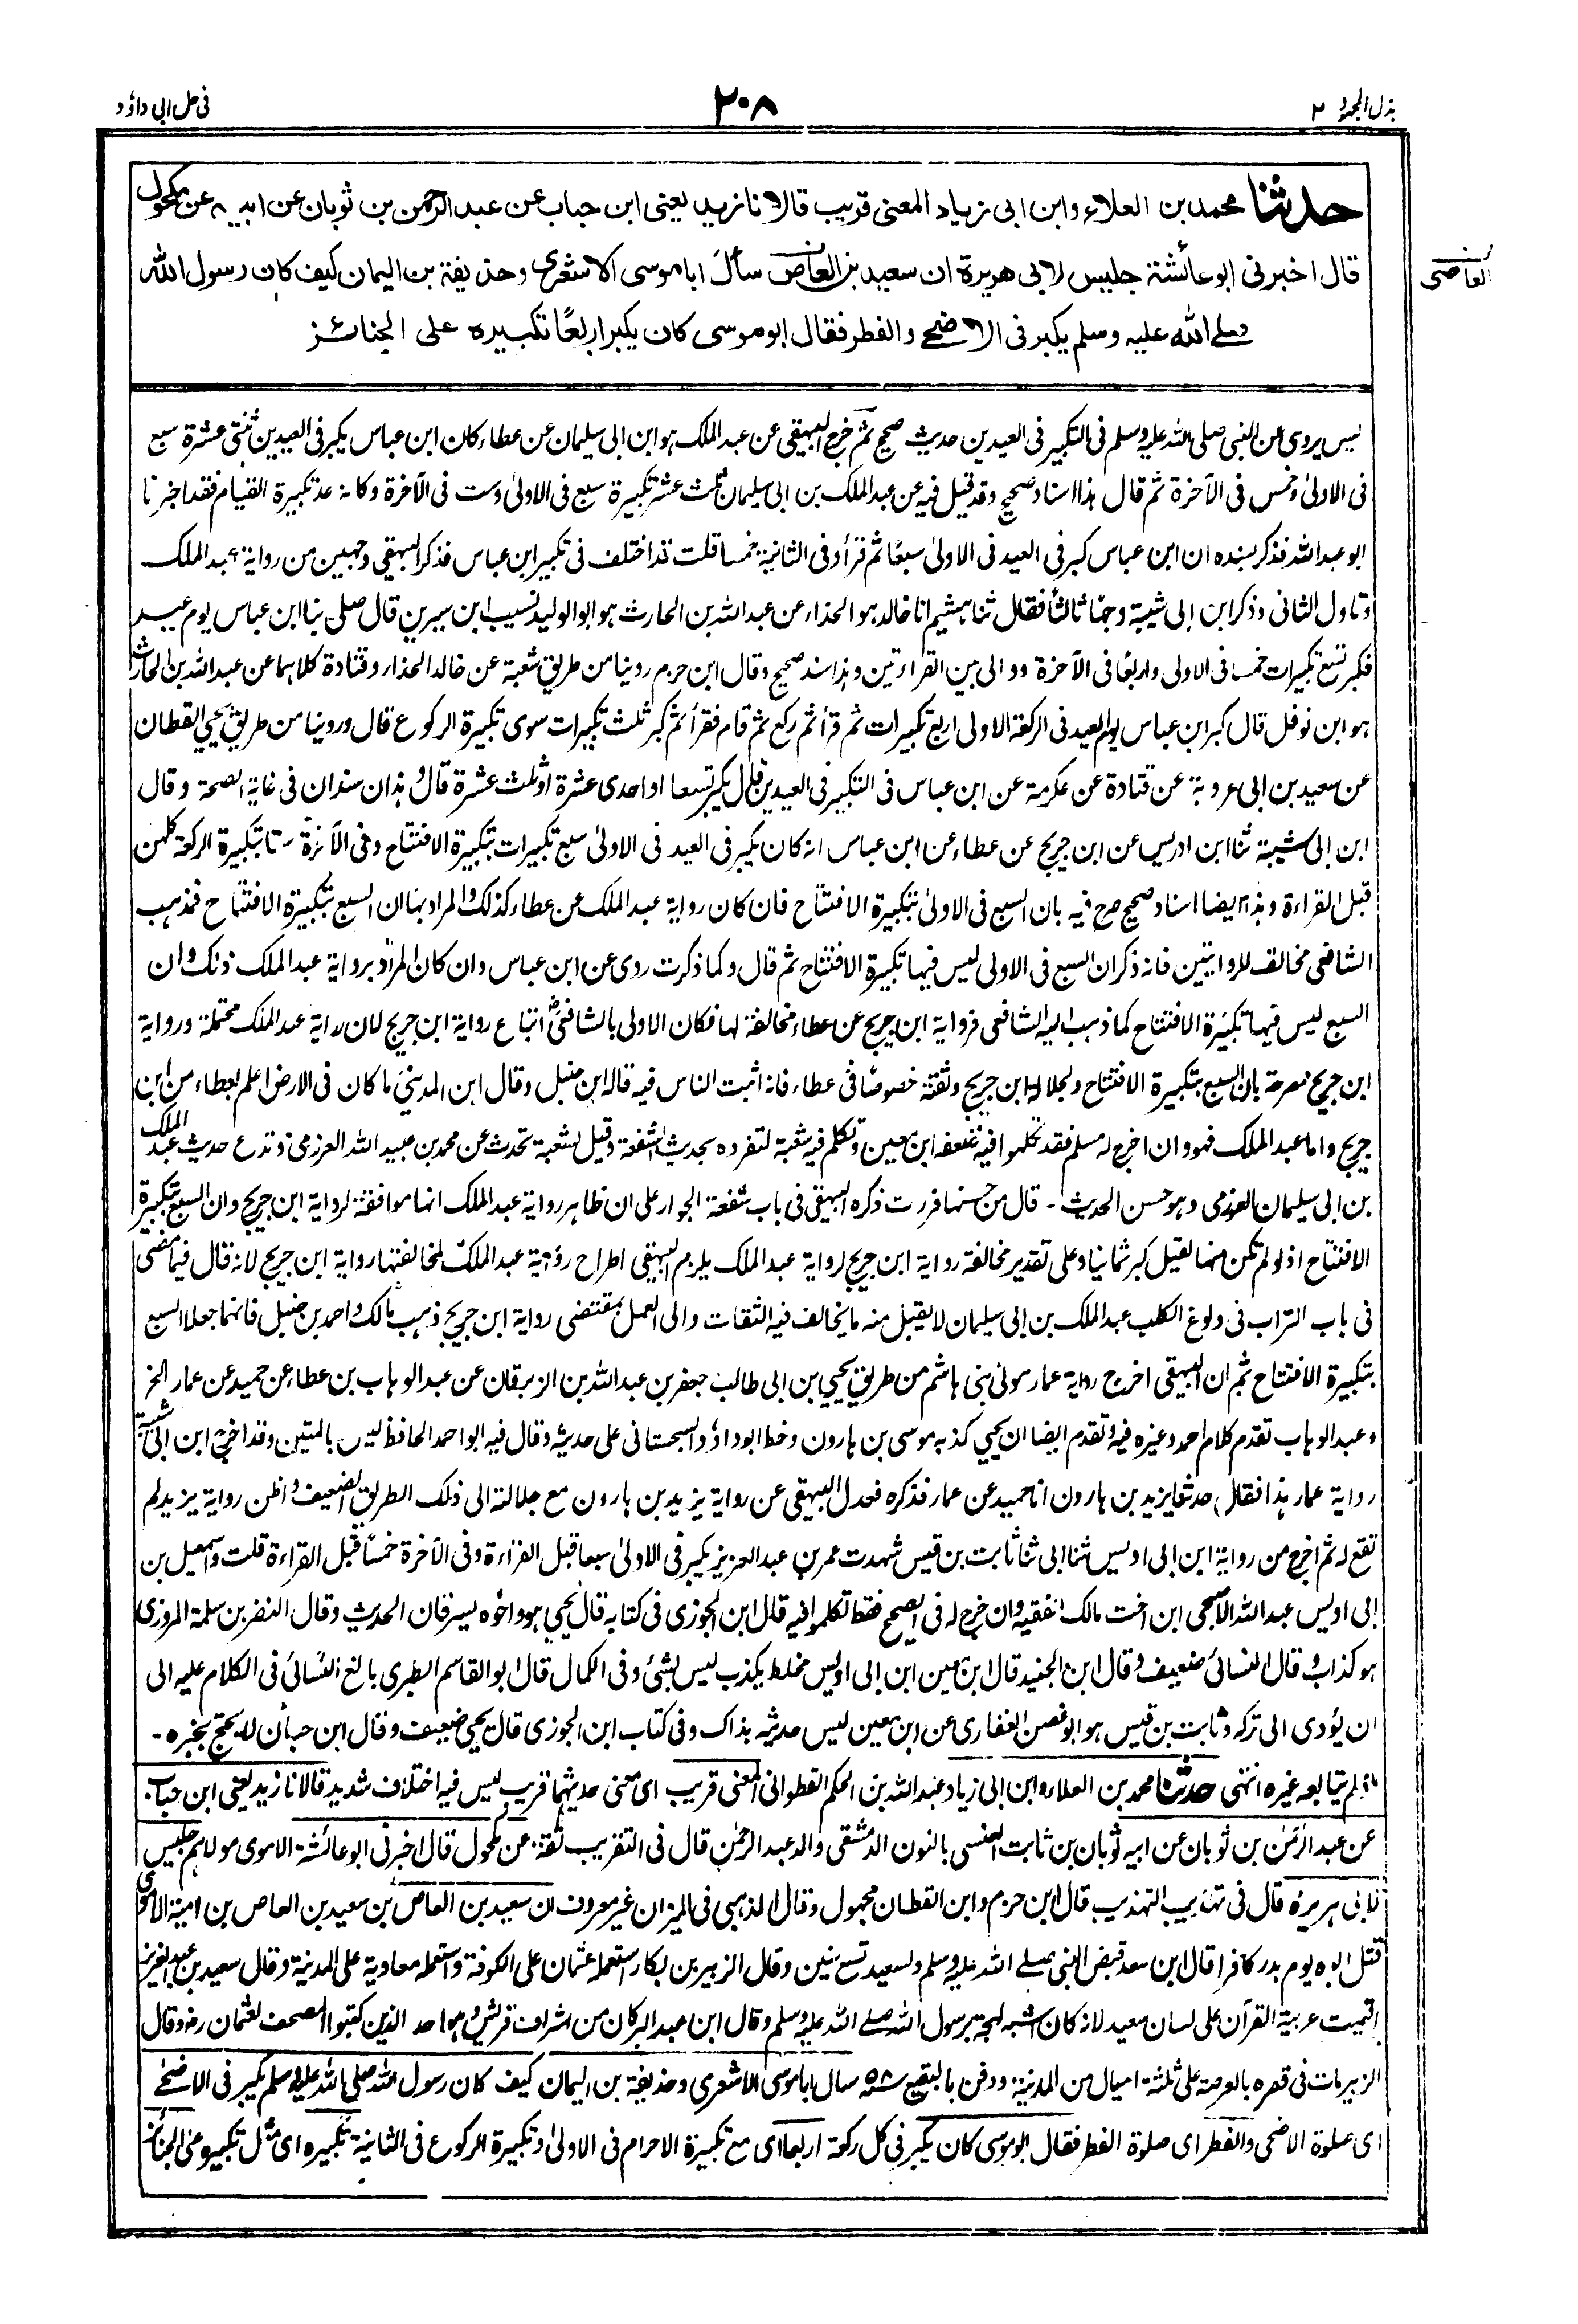 بذل المجهود ٢
٢٠٨
فى حل ابى داؤد
حدثنا محمد بن العلاء وابن ابى زياد المعنى قريب قالا نا زيد يعنى ابن حباب عن عبد الرحمن بن ثوبان عن ابيه عن مكحول
قال اخبرنى ابو عائشة جليس لابى هريرة ان سعيد بن العاص سأل ابا موسى الاشعرى وحذيفة بن اليمان كيف كان رسول الله
العاصى
صلى الله عليه وسلم يكبر فى الاضحى والفطر فقال ابو موسى كان يكبر اربعًا تكبيره على الجنائز
ليس يروى عن النبى صلى الله عليه وسلم فى التكبير فى العيدين حديث صحيح ثم خرج البيهقى عن عبد الملك هو ابن ابى سليمان عن عطاء كان ابن عباس يكبر فى العيدين ثنتى عشرة سبع
فى الاولىٰ وخمس فى الآخرة ثم قال هذا اسناد صحيح وقد قيل فيه عن عبد الملك بن ابى سليمان ثلث عشر تكبيرة سبع فى الاولىٰ وست فى الآخرة وكانه عد تكبيرة القيام فقد اخبرنا
ابو عبد الله فذكر بسنده ان ابن عباس كبر فى العيد فى الاولىٰ سبعًا ثم قرأ وفى الثانية خمسا قلت قد اختلف فى تكبير ابن عباس فذكر البيهقى وجهين من رواية عبد الملك
وتاول الثانى وذكر ابن ابى شيبة وجهًا ثالثًا فقال ثنا هشيم انا خالد هو الحذاء عن عبد الله بن الحارث هو ابو الوليد نسيب ابن سيرين قال صلى بنا ابن عباس يوم عيد
فكبر تسع تكبيرات خمسا فى الاولى واربعًا فى الآخرة ووالى بين القراءتين وهذا سند صحيح وقال ابن حزم روينا من طريق شعبة عن خالد الحذاء وقتادة كلاهما عن عبد الله بن الحارث
هو ابن نوفل قال كبر ابن عباس يوم العيد فى الركعة الاولى اربع تكبيرات ثم قرأ ثم ركع ثم قام فقرأ ثم كبر ثلث تكبيرات سوى تكبيرة الركوع قال وروينا من طريق يحيي القطان
عن سعيد بن ابى عروبة عن قتادة عن عكرمة عن ابن عباس فى التكبير فى العيدين قال يكبر تسعا او احدى عشرة او ثلث عشرة قال وهذان سندان فى غاية الصحة وقال
ابن ابى شيبة ثنا ابن ادريس عن ابن جريج عن عطاء عن ابن عباس انه كان يكبر فى العيد فى الاولىٰ سبع تكبيرات بتكبيرة الافتتاح وفى الآخرة ستا بتكبيرة الركعة كلهن
قبل القراءة وهذا ايضا اسناد صحيح صرح فيه بان السبع فى الاولىٰ بتكبيرة الافتتاح فان كان رواية عبد الملك عن عطاء كذلك والمراد بها ان السبع بتكبيرة الافتتاح فمذهب
الشافعى مخالف للروايتين فانه ذكر ان السبع فى الاولى ليس فيها تكبيرة الافتتاح ثم قال وكما ذكرت روى عن ابن عباس وان كان المراد برواية عبد الملك ذلك وان
السبع ليس فيها تكبيرة الافتتاح كما ذهب اليه الشافعى فرواية ابن جريج عن عطاء مخالفة لها فكان الاولى بالشافعىؒ اتباع رواية ابن جريج لان رواية عبد الملك محتملة ورواية
ابن جريج مصرحة بان السبع بتكبيرة الافتتاح ولجلالة ابن جريج وثقته خصوصًا فى عطاء فانه اثبت الناس فيه قاله ابن حنبل وقال ابن المدينى ما كان فى الارض اعلم بعطاء من ابن
جريج واما عبد الملك فهو وان اخرج له مسلم فقد تكلموا فيه ضعفه ابن معين وتكلم فيه شعبة لتفرده بحديث الشفعة وقيل لشعبة تحدث عن محمد بن عبيد الله العرزمى وتدع حديث عبد الملك
بن ابى سليمان العرزمى وهو حسن الحديث ۔ قال من حسنها فررت ذكره البيهقى فى باب شفعة الجوار على ان ظاهر رواية عبد الملك انها موافقة لرواية ابن جريج وان السبع بتكبيرة
الافتتاح اذ لو لم تكن منها لقيل كبر ثمانيا وعلى تقدير مخالفة رواية ابن جريج لرواية عبد الملك يلزم البيهقى اطراح رواية عبد الملك لمخالفتها رواية ابن جريج لانه قال فيما مضى
فى باب التراب فى ولوغ الكلب عبد الملك بن ابى سليمان لا يقبل منه ما يخالف فيه الثقات والى العمل بمقتضى رواية ابن جريج ذهب مالك واحمد بن حنبل فانهما جعلا السبع
بتكبيرة الافتتاح ثم ان البيهقى اخرج رواية عمار مولى بنى هاشم من طريق يحيي ابن ابى طالب جعفر بن عبد الله بن الزبرقان عن عبد الوهاب بن عطاء عن حميد عن عمار الخ
وعبد الوهاب تقدم كلام احمد وغيره فيه وتقدم ايضا ان يحيي كذبه موسى بن هارون وخط ابوداؤد السجستانى على حديثه وقال فيه ابو احمد الحافظ ليس بالمتين وقد اخرج ابن ابى شيبة
رواية عمار هذا فقال حدثنا يزيد بن هارون انا حميد عن عمار فذكره فعدل البيهقى عن رواية يزيد بن هارون مع جلالته الى ذلك الطريق الضعيف واظن رواية يزيد لم
تقع له ثم اخرج من رواية ابن ابى اويس ثنا ابى ثنا ثابت بن قيس شهدت عمر بن عبد العزيز يكبر فى الاولىٰ سبعا قبل القراءة وفى الآخرة خمسًا قبل القراءة قلت واسمعيل بن
ابى اويس عبد الله الاصبحى ابن اخت مالك الفقيه وان خرج له فى الصحيح فقد تكلموا فيه قال ابن الجوزى فى كتابه قال يحيي هو وابوه يسرقان الحديث وقال النضر بن سلمة المروزى
هو كذاب وقال النسائى ضعيف وقال ابن الجنيد قال ابن معين ابن ابى اويس مخلط يكذب ليس بشئ وفى الكمال قال ابو القاسم الطبرى بالغ النسائى فى الكلام عليه الى
ان يؤدى الى تركه وثابت بن قيس هو ابو غصن الغفارى عن ابن معين ليس حديثه بذاك وفى كتاب ابن الجوزى قال يحيي ضعيف وقال ابن حبان لا يحتج بخبره ۔
ما لم يتابعه غيره انتهى حدثنا محمد بن العلاء وابن ابى زياد عبد الله بن الحكم القطوانى المعنى قريب اى معنى حديثهما قريب ليس فيه اختلاف شديد قالا نا زيد يعنى ابن حباب
عن عبد الرحمن بن ثوبان عن ابيه ثوبان بن ثابت العنسى بالنون الدمشقى والد عبد الرحمن قال فى التقريب ثقة عن مكحول قال اخبرنى ابو عائشة الاموى مولاهم جليس
لابى هريرة قال فى تهذيب التهذيب قال ابن حزم وابن القطان مجهول وقال الذهبى فى الميزان غير معروف ان سعيد بن العاص بن سعيد بن العاص بن امية الاموى
قتل ابوه يوم بدر كافرا قال ابن سعد قبض النبى صلى الله عليه وسلم ولسعيد تسع سنين وقال الزبير بن بكار استعمله عثمان على الكوفة واستعمله معاوية على المدينة وقال سعيد بن عبد العزيز
اقيمت عربية القرآن على لسان سعيد لانه كان اشبههم لهجة برسول الله صلى الله عليه وسلم وقال ابن عبد البر كان من اشراف قريش وهو احد الذين كتبوا المصحف لعثمان رضه وقال
الزبير مات فى قصره بالعرصة على ثلثة اميال من المدينة ودفن بالبقيع سنة ٥٨ سأل ابا موسى الاشعرى وحذيفة بن اليمان كيف كان رسول الله صلى الله عليه وسلم يكبر فى الاضحى
اى صلوة الاضحى والفطر اى صلوة الفطر فقال ابو موسى كان يكبر فى كل ركعة اربعا اى مع تكبيرة الاحرام فى الاولىٰ وتكبيرة الركوع فى الثانية تكبيره اى مثل تكبيره على الجنائز